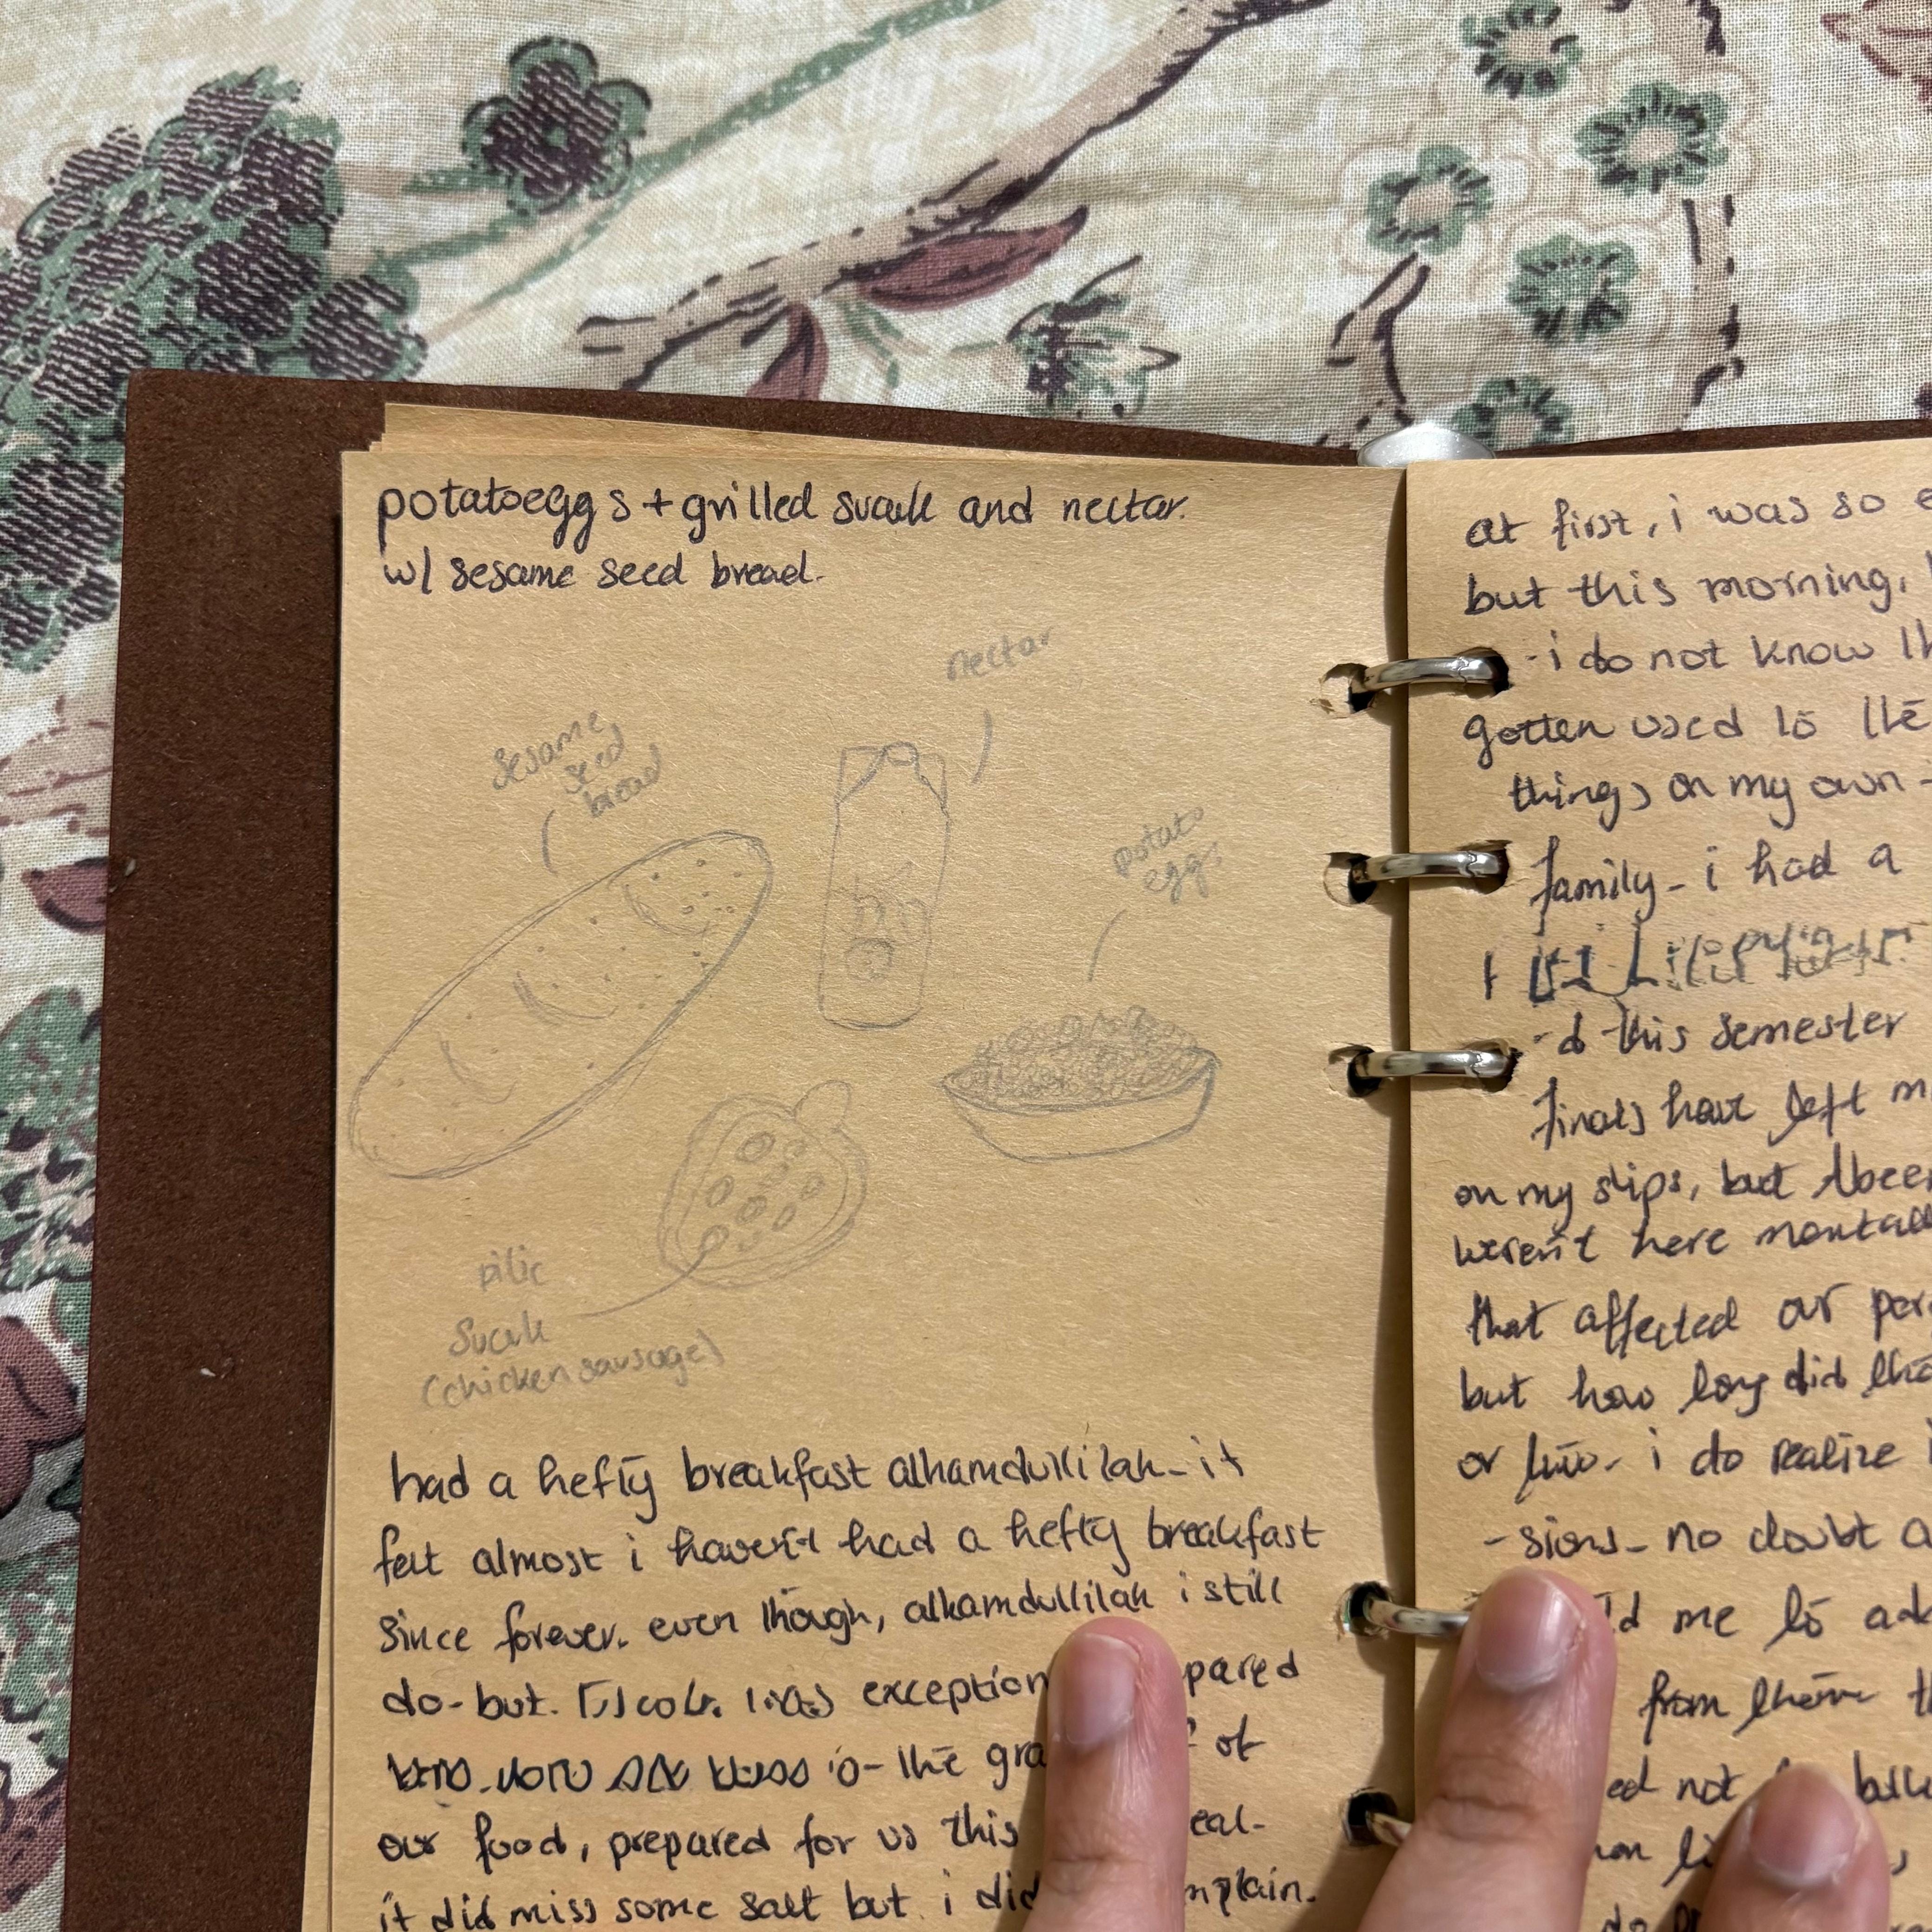 potatoeggs + grilled sucuk and nectar.
w/ sesame seed bread.
nectar
sesame
seed
bread
potato
eggs
pilic
Sucuk
(chicken sausage)
had a hefty breakfast alhamdullilah - it
felt almost i haven't had a hefty breakfast
since forever. even though, alhamdullilah i still
do - but. exception pared
the gra of
our food, prepared for us this eal-
it did miss some salt but i did mplain.
at first, i was so
but this morning,
- i do not know
gotten used to the
things on my own -
family - i had a
-d this semester
finals have left m
on my slips, but
weren't here mentall
that affected our par
but how long did the
or two - i do realize
-sions - no doubt a
ld me to ad
from them
ed not